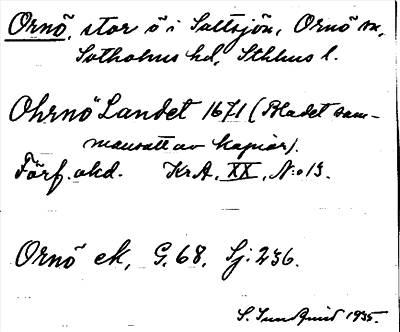 Ornö, stor ö i Saltsjön, Ornö sn,
Sotholms hd, Sthlms l.
Ohrnö Landet 1671 (Bladet sam-
mansatt av kopior).
Förf. okd. KrA, XX, N:o 13.
Ornö ek, G. 68, Sj. 236.
S. Sundquist 1935.